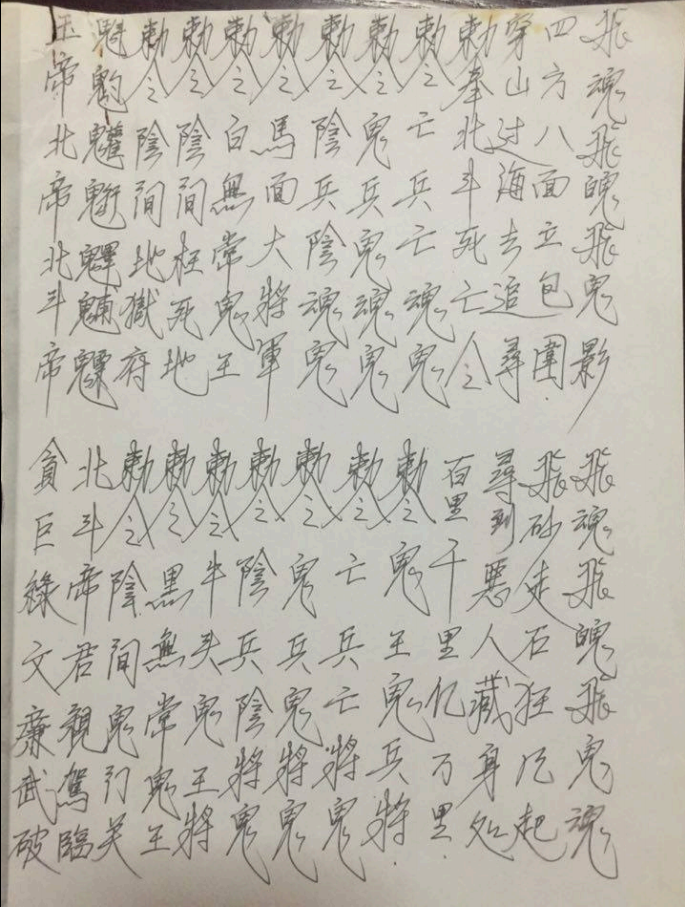 玉帝北帝北斗帝
魁魓魒
勅令陰間地獄府
勅令陰間枉死地
勅令白無常鬼王
勅令馬面大將軍
勅令陰兵陰魂鬼
勅令鬼兵鬼魂鬼
勅令亡兵亡魂鬼
勅奉北斗死亡令
穿山过海去追尋
四方八面立包圍
飛魂飛魄飛鬼影
貪巨祿文廉武破
北斗帝君親駕臨
勅令陰間鬼门关
勅令黑無常鬼王
勅令牛头鬼王將
勅令陰兵陰將鬼
勅令鬼兵鬼將鬼
勅令亡兵亡將鬼
勅令鬼王鬼兵將
百里千里亿万里
尋到惡人藏身处
飛砂走石狂风起
飛魂飛魄飛鬼魂